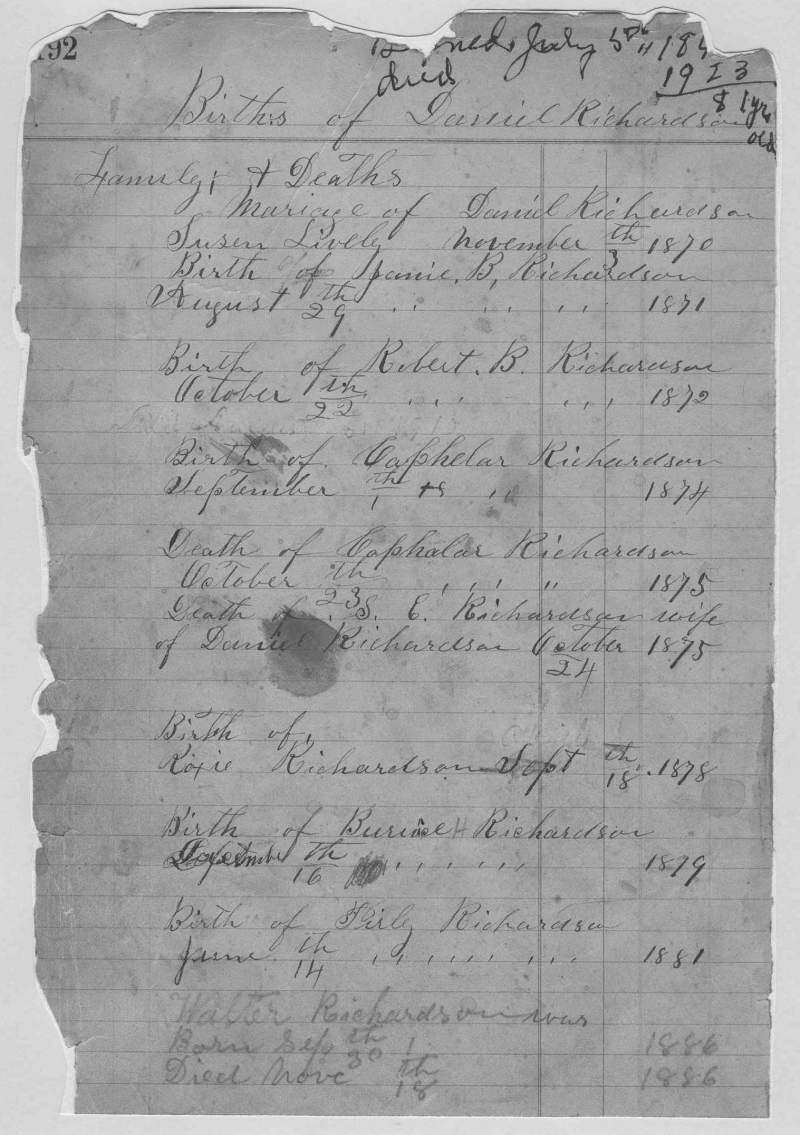 192
Borned July 5th 184
died 1923
81yrs
old
Births of Daniel Richardson
Family, + Deaths
Mariage of Daniel Richardson
Susen Lively November 3th 1870
Birth of Janie. B, Richardson
August 29th " " " 1871
Birth of Robert. B. Richardson
October 22th " " 1872
Birth of Caphelar Richardson
September 1th " 1874
Death of Caphalar Richardson
October 23th " " " 1875
Death of S. E. Richardson wife
of Daniel Richardson October 24 1875
Birth of,
Roxie Richardson Sept 18th. 1878
Birth of H Richardson
16th " " " 1879
Birth of Pirly Richardson
June 14th " " " " 1881
Walter Richardson was
Born Sep 30th 1886
Died Nove 18th 1886